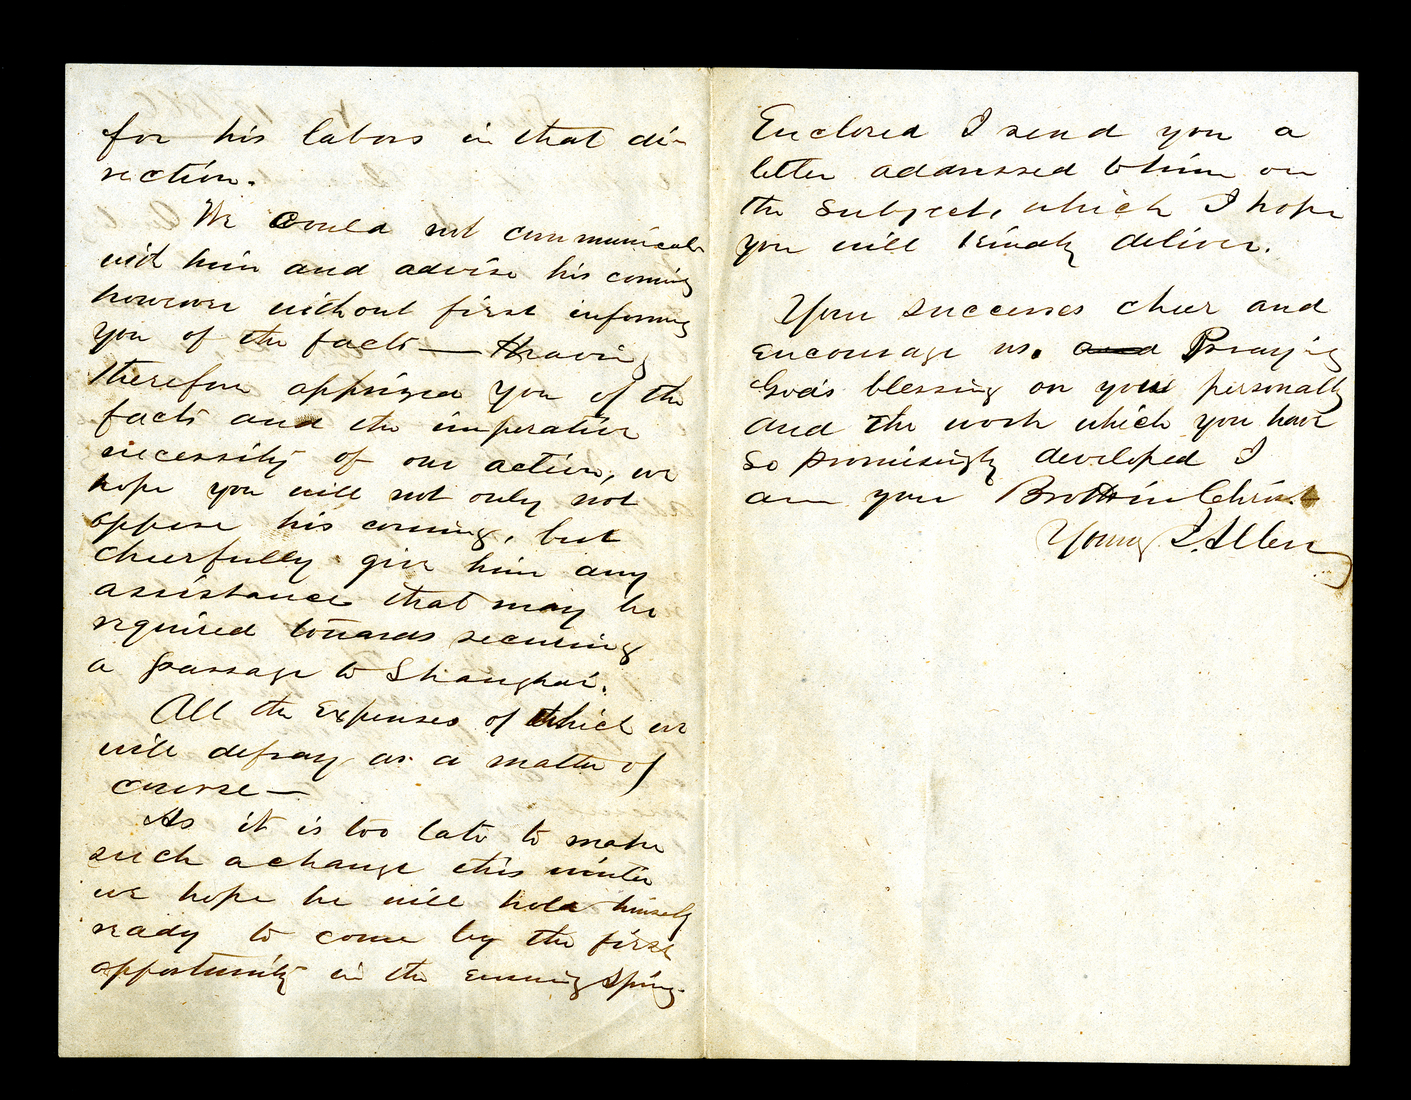 for his labors in that di-
rection.
We could not communicate
with him and advise his coming
however without first informing
you of the facts — Having
therefore apprized you of the
facts and the imperative
necessity of our action, we
hope you will not only not
oppose his coming, but
cheerfully give him any
assistance that may be
required towards securing
a passage to Shanghai.
All the expenses of which we
will defray as a matter of
course —
As it is too late to make
such a change this winter
we hope he will hold himself
ready to come by the first
opportunity in the ensuing Spring.
Enclosed I send you a
letter addressed to him on
the subject, which I hope
you will kindly deliver.
Your successes cheer and
encourage us. and Praying
God's blessing on you personally
and the work which you have
so promisingly developed I
am your Broth in Christ
Young J. Allen